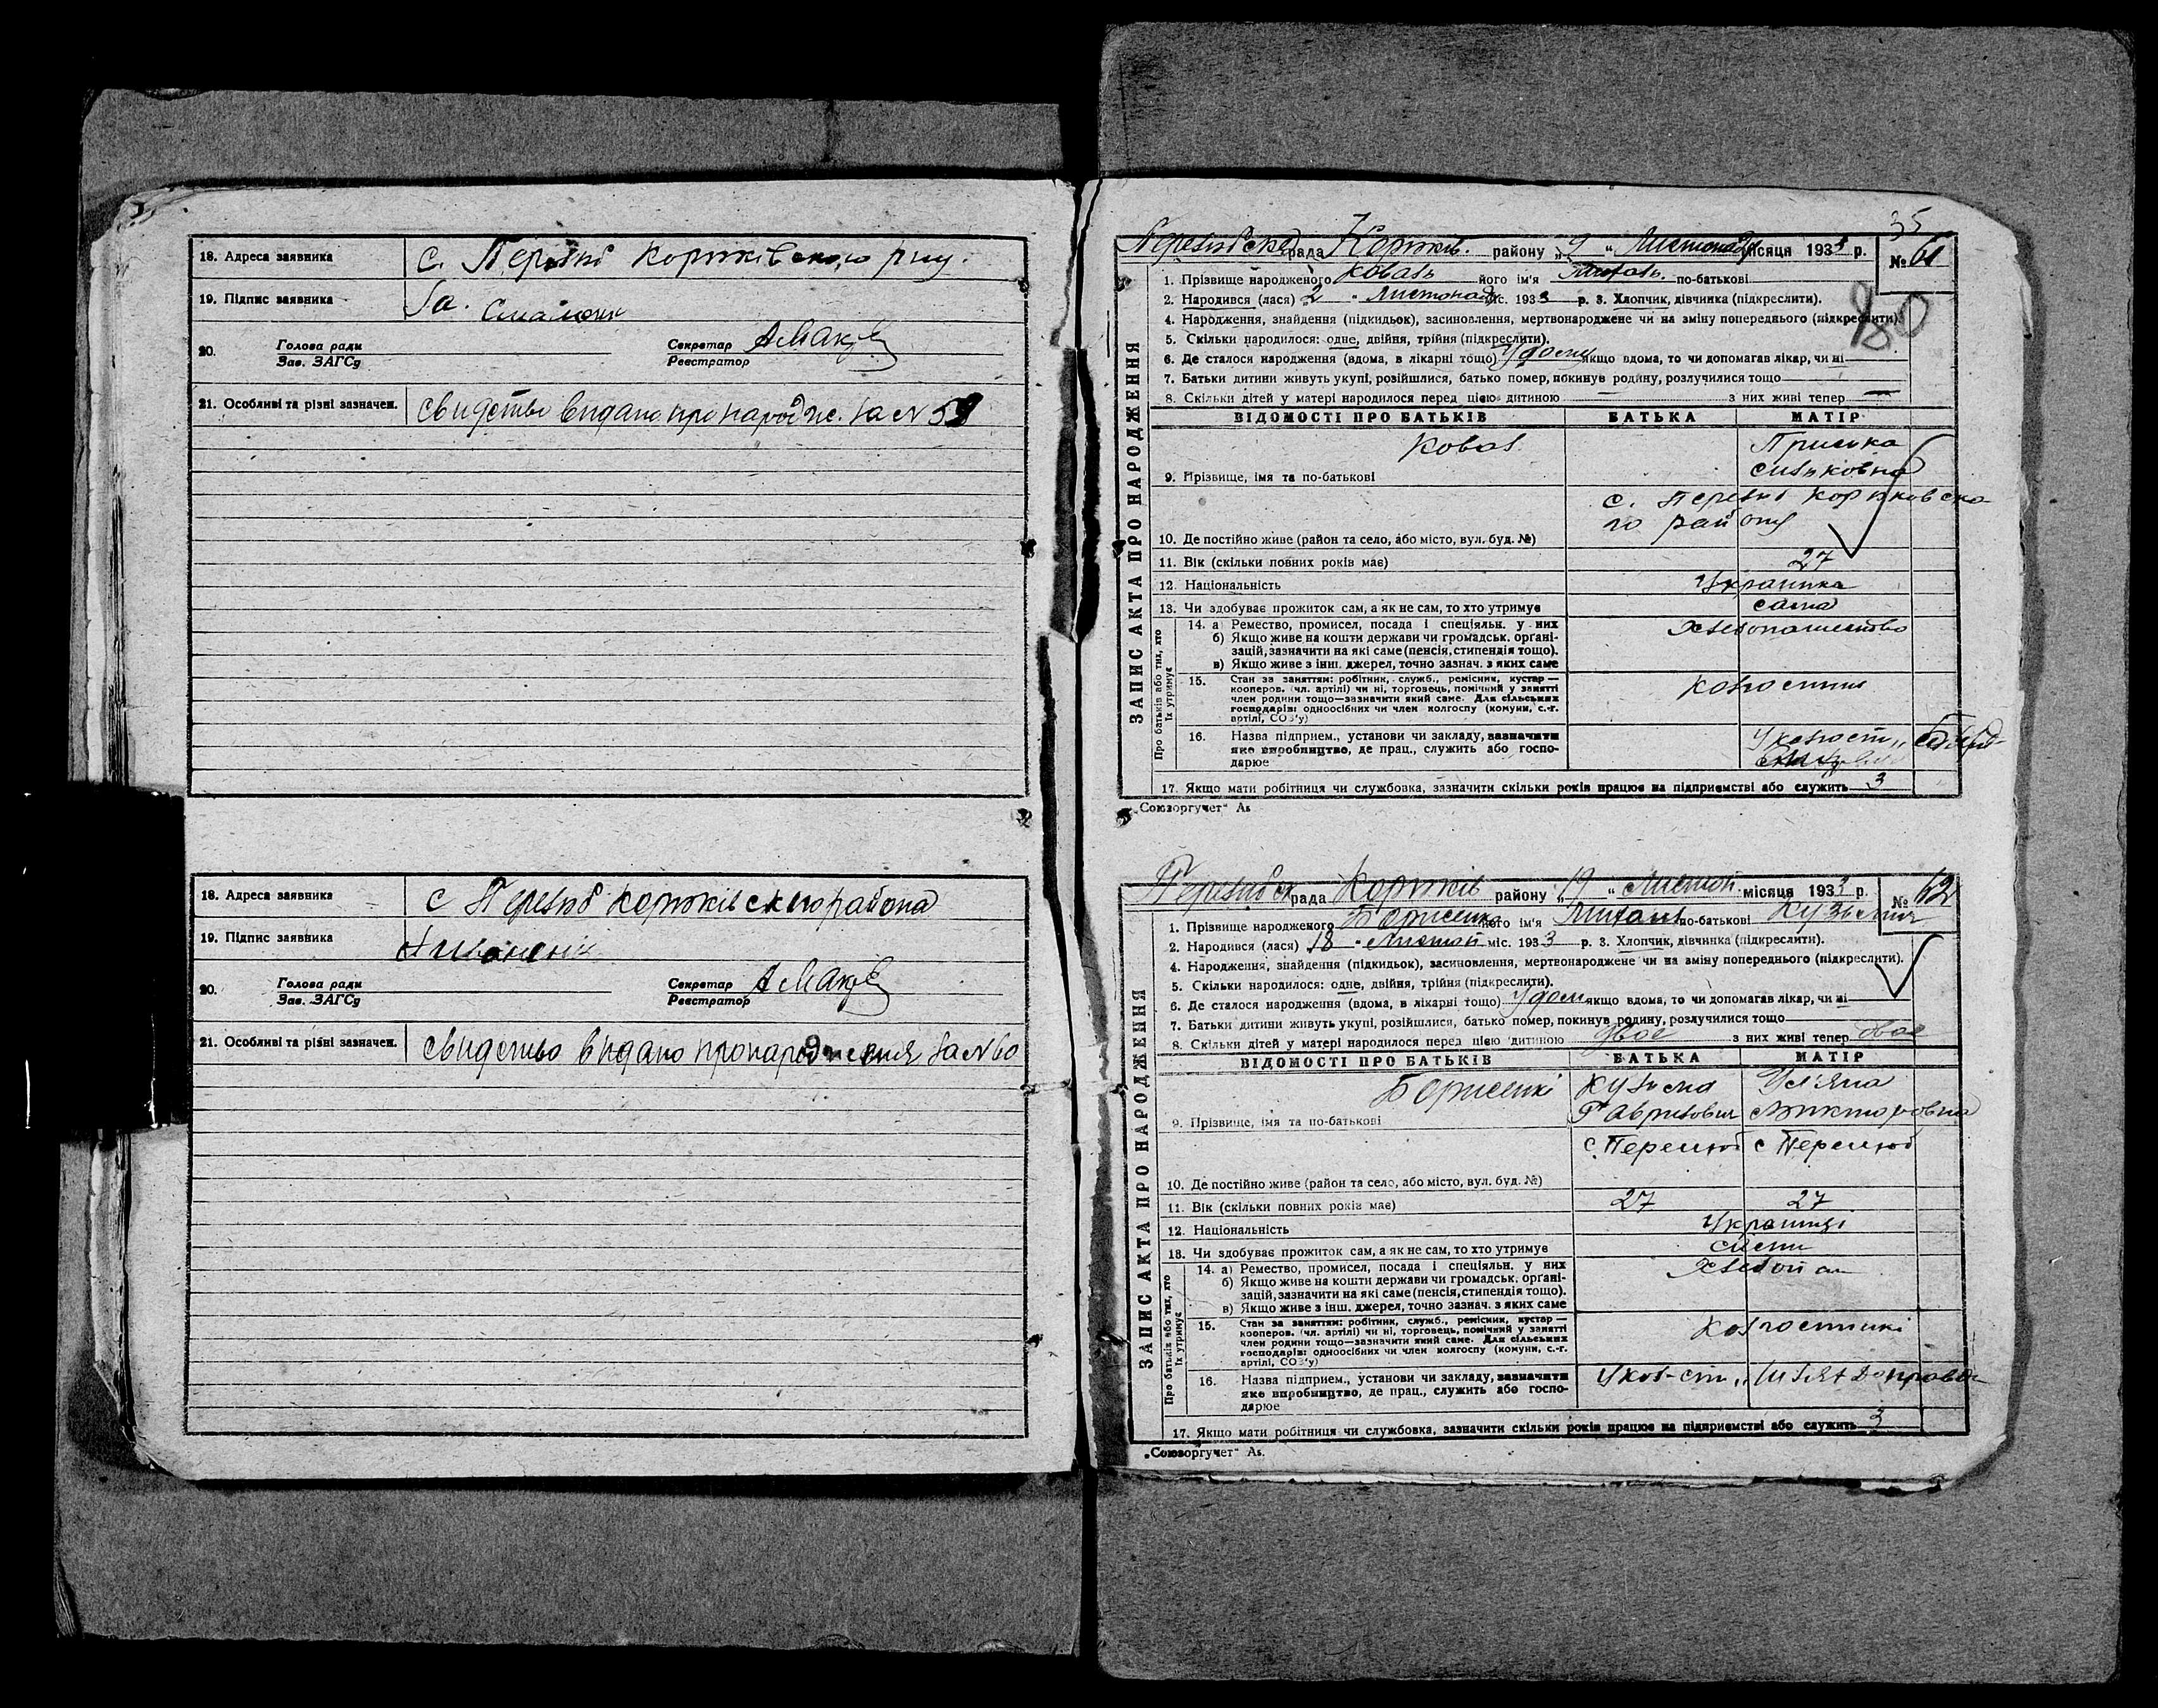 18. Адреса заявника с. Перелюб Корюківського р-ну.
19. Підпис заявника За.
20. Голова ради Секретар
Зав. ЗАГСу Реєстратор
21. Особливі та різні зазначен. Свидетво видано про народже. за № 59
18. Адреса заявника с Перелюб Корюківского района
19. Підпис заявника
20. Голова ради Секретар
Зав. ЗАГСу Реєстратор
21. Особливі та різні зазначен. Свидетво видано про народження за № 60
35
рада Корюків. району „9 “ Листопада місяця 1933 р. № 61
1. Прізвище народженого Коваль його ім'я по-батькові
2. Народився (лася) 2 “ Листопада міс. 1933 р. 3. Хлопчик, дівчинка (підкреслити).
80
4. Народження, знайдення (підкидьок), засиновлення, мертвонароджене чи на зміну попереднього (підкреслити)
5. Скільки народилося: одне, двійня, трійня (підкреслити).
6. Де сталося народження (вдома, в лікарні тощо) У дома якщо вдома, то чи допомагав лікар, чи ні
7. Батьки дитини живуть укупі, розійшлися, батько помер, покинув родину, розлучилися тощо
8. Скільки дітей у матері народилося перед цією дитиною — з них живі тепер —
ЗАПИС АКТА ПРО НАРОДЖЕННЯ
ВІДОМОСТІ ПРО БАТЬКІВ БАТЬКА МАТІР
Коваль Приська
9. Прізвище, імя та по-батькові
с. Перелюб Корюковско
го району
10. Де постійно живе (район та село, або місто, вул. буд. №)
11. Вік (скільки повних років має) 27
12. Національність Українка
13. Чи здобуває прожиток сам, а як не сам, то хто утримує сама
Про батьків або тих, хто їх утримує
14. а) Ремество, промисел, посада і спеціяльн. у них Хлебопашество
б) Якщо живе на кошти держави чи громадськ. органі-
зацій, зазначити на які саме (пенсія, стипендія тощо).
в) Якщо живе з інш. джерел, точно зазнач. з яких саме
15. Стан за заняттям: робітник, служб., ремісник, кустар—
кооперов. (чл. артілі) чи ні, торговець, помічний у занятті
член родини тощо—зазначити який саме. Для сільських
господарів: одноосібних чи член колгоспу (комуни, с.-г.
артілі, СОЗ'у)
16. Назва підприєм., установи чи закладу, зазначити
яке виробництво, де прац., служить або госпо-
дарює
17. Якщо мати робітниця чи службовка, зазначити скільки років працює на підприємстві або служить 3
„Союзоргучет“
рада Корюків району „19 “ Листоп. місяця 1933 р. № 62
1. Прізвище народженого Борисенко його ім'я по-батькові Кузьмич
2. Народився (лася) 18 “ Листоп міс. 1933 р. 3. Хлопчик, дівчинка (підкреслити).
4. Народження, знайдення (підкидьок), засиновлення, мертвонароджене чи на зміну попереднього (підкреслити).
5. Скільки народилося: одне, двійня, трійня (підкреслити).
6. Де сталося народження (вдома, в лікарні тощо) У дом якщо вдома, то чи допомагав лікар, чи ні
7. Батьки дитини живуть укупі, розійшлися, батько помер, покинув родину, розлучилися тощо
8. Скільки дітей у матері народилося перед цією дитиною двоє з них живі тепер двоє
ЗАПИС АКТА ПРО НАРОДЖЕННЯ
ВІДОМОСТІ ПРО БАТЬКІВ БАТЬКА МАТІР
Борисенкі Кузьма Уляна
Гаврилович Викторовна
9. Прізвище, імя та по-батькові
с. Перелюб с Перелюб
10. Де постійно живе (район та село, або місто, вул. буд. №)
11. Вік (скільки повних років має) 27 27
12. Національність Українці
13. Чи здобуває прожиток сам, а як не сам, то хто утримує сами
Про батьків або тих, хто їх утримує
14. а) Ремество, промисел, посада і спеціяльн. у них Хлебопаш
б) Якщо живе на кошти держави чи громадськ. органі-
зацій, зазначити на які саме (пенсія, стипендія тощо).
в) Якщо живе з інш. джерел, точно зазнач. з яких саме
15. Стан за заняттям: робітник, служб., ремісник, кустар—
кооперов. (чл. артілі) чи ні, торговець, помічний у занятті
член родини тощо—зазначити який саме. Для сільських
господарів: одноосібних чи член колгоспу (комуни, с.-г.
артілі, СОЗ'у)
Колгоспники
16. Назва підприєм., установи чи закладу, зазначити
яке виробництво, де прац., служить або госпо-
дарює
17. Якщо мати робітниця чи службовка, зазначити скільки років працює на підприємстві або служить 3
„Союзоргучет“